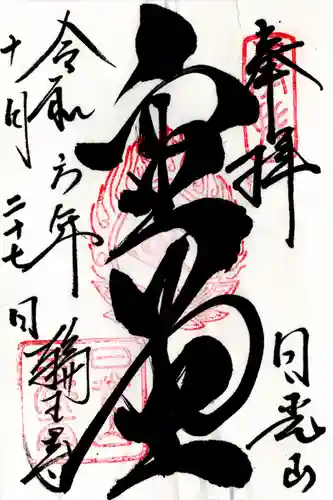 奉拝
日光山
金堂
令和六年
十月二十七日
輪王寺